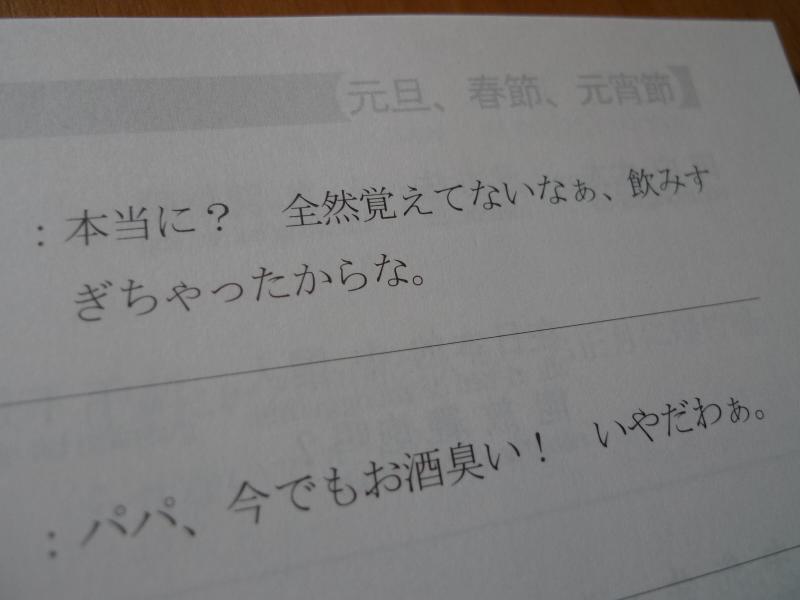 【元旦、春節、元宵節】
：本当に？　全然覚えてないなぁ、飲みす
ぎちゃったからな。
：パパ、今でもお酒臭い！　いやだわぁ。